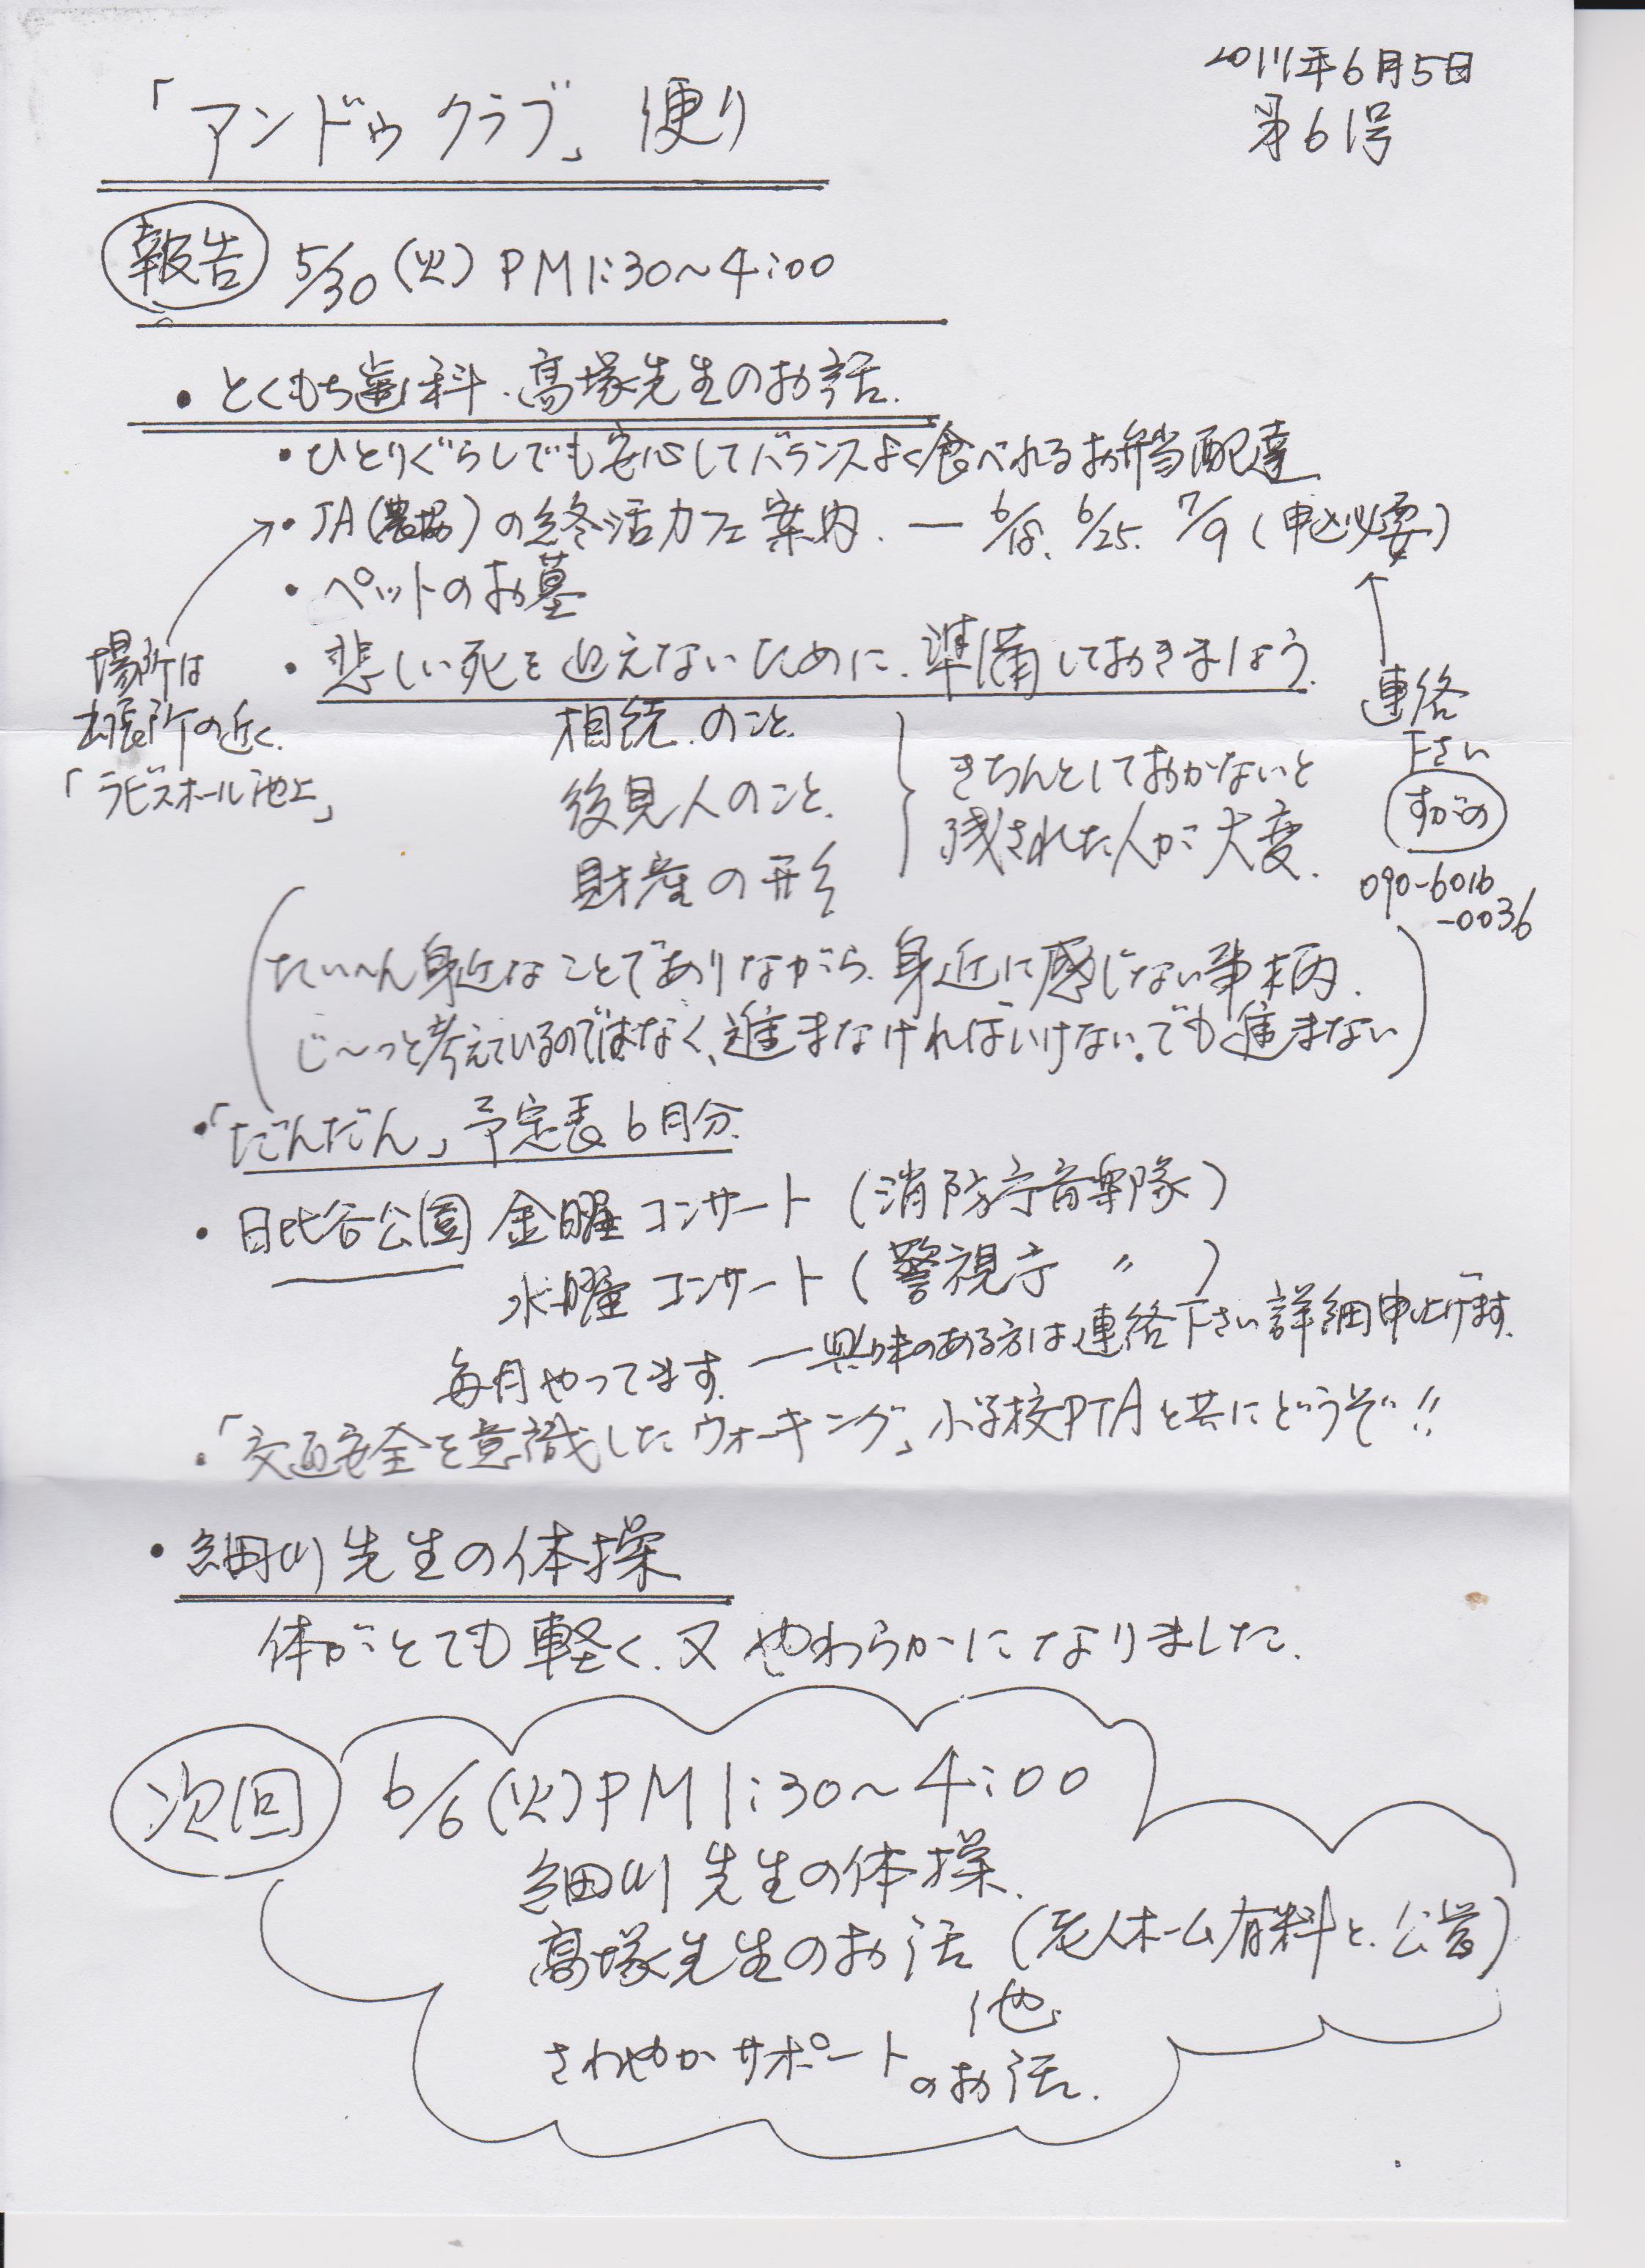 2017年6月5日
第61号
「アンドゥクラブ」便り
報告 5/30(火)PM1:30〜4:00
・とくもち歯科、高塚先生のお話.
・ひとりぐらしでも安心してバランスよく食べれるお弁当配達
・JA(農協)の終活カフェ案内. ー 6/18. 6/25. 7/9(申込必要)
・ペットのお墓
・悲しい死を迎えないために.準備しておきましょう.
場所は
出張所の近く.
「ラビスホール池上」
相続.のこと.
後見人のこと.
財産の形
きちんとしておかないと
残された人が大変.
連絡
下さい
すがの
090-6016
-0036
(たいへん身近なことでありながら.身近に感じない事柄.
じ〜っと考えているのではなく、進まなければいけない。でも進まない)
・「だんだん」予定表6月分.
・日比谷公園 金曜コンサート(消防庁音楽隊)
水曜コンサート(警視庁 〃 )
毎月やってます.ー興味のある方は連絡下さい詳細申し上げます.
・「交通安全を意識したウォーキング」小学校PTAと共にどうぞ!!
・細川先生の体操
体がとても軽く.又やわらかになりました.
次回 6/6(火)PM1:30〜4:00
細川先生の体操.
高塚先生のお話(老人ホーム有料と.公営)
他
さわやかサポートのお話.